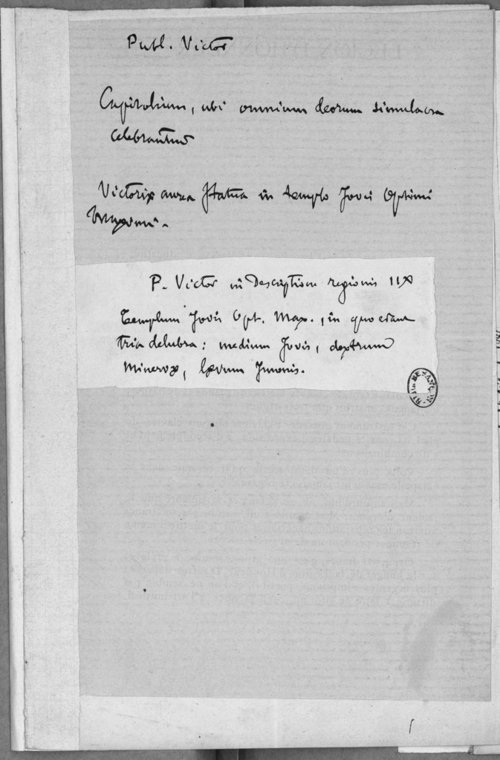 Publ. Victor
Capitolium, ubi omnium deorum simulacra
celebrantur
Victoriæ aurea statua in templo Jovis Optimi
Maximi.
P. Victor in Descriptione regionis IIX
Templum Jovis Opt. Max., in quo erant
tria delubra: medium Jovis, dextrum
Minervæ, lævum Junonis.